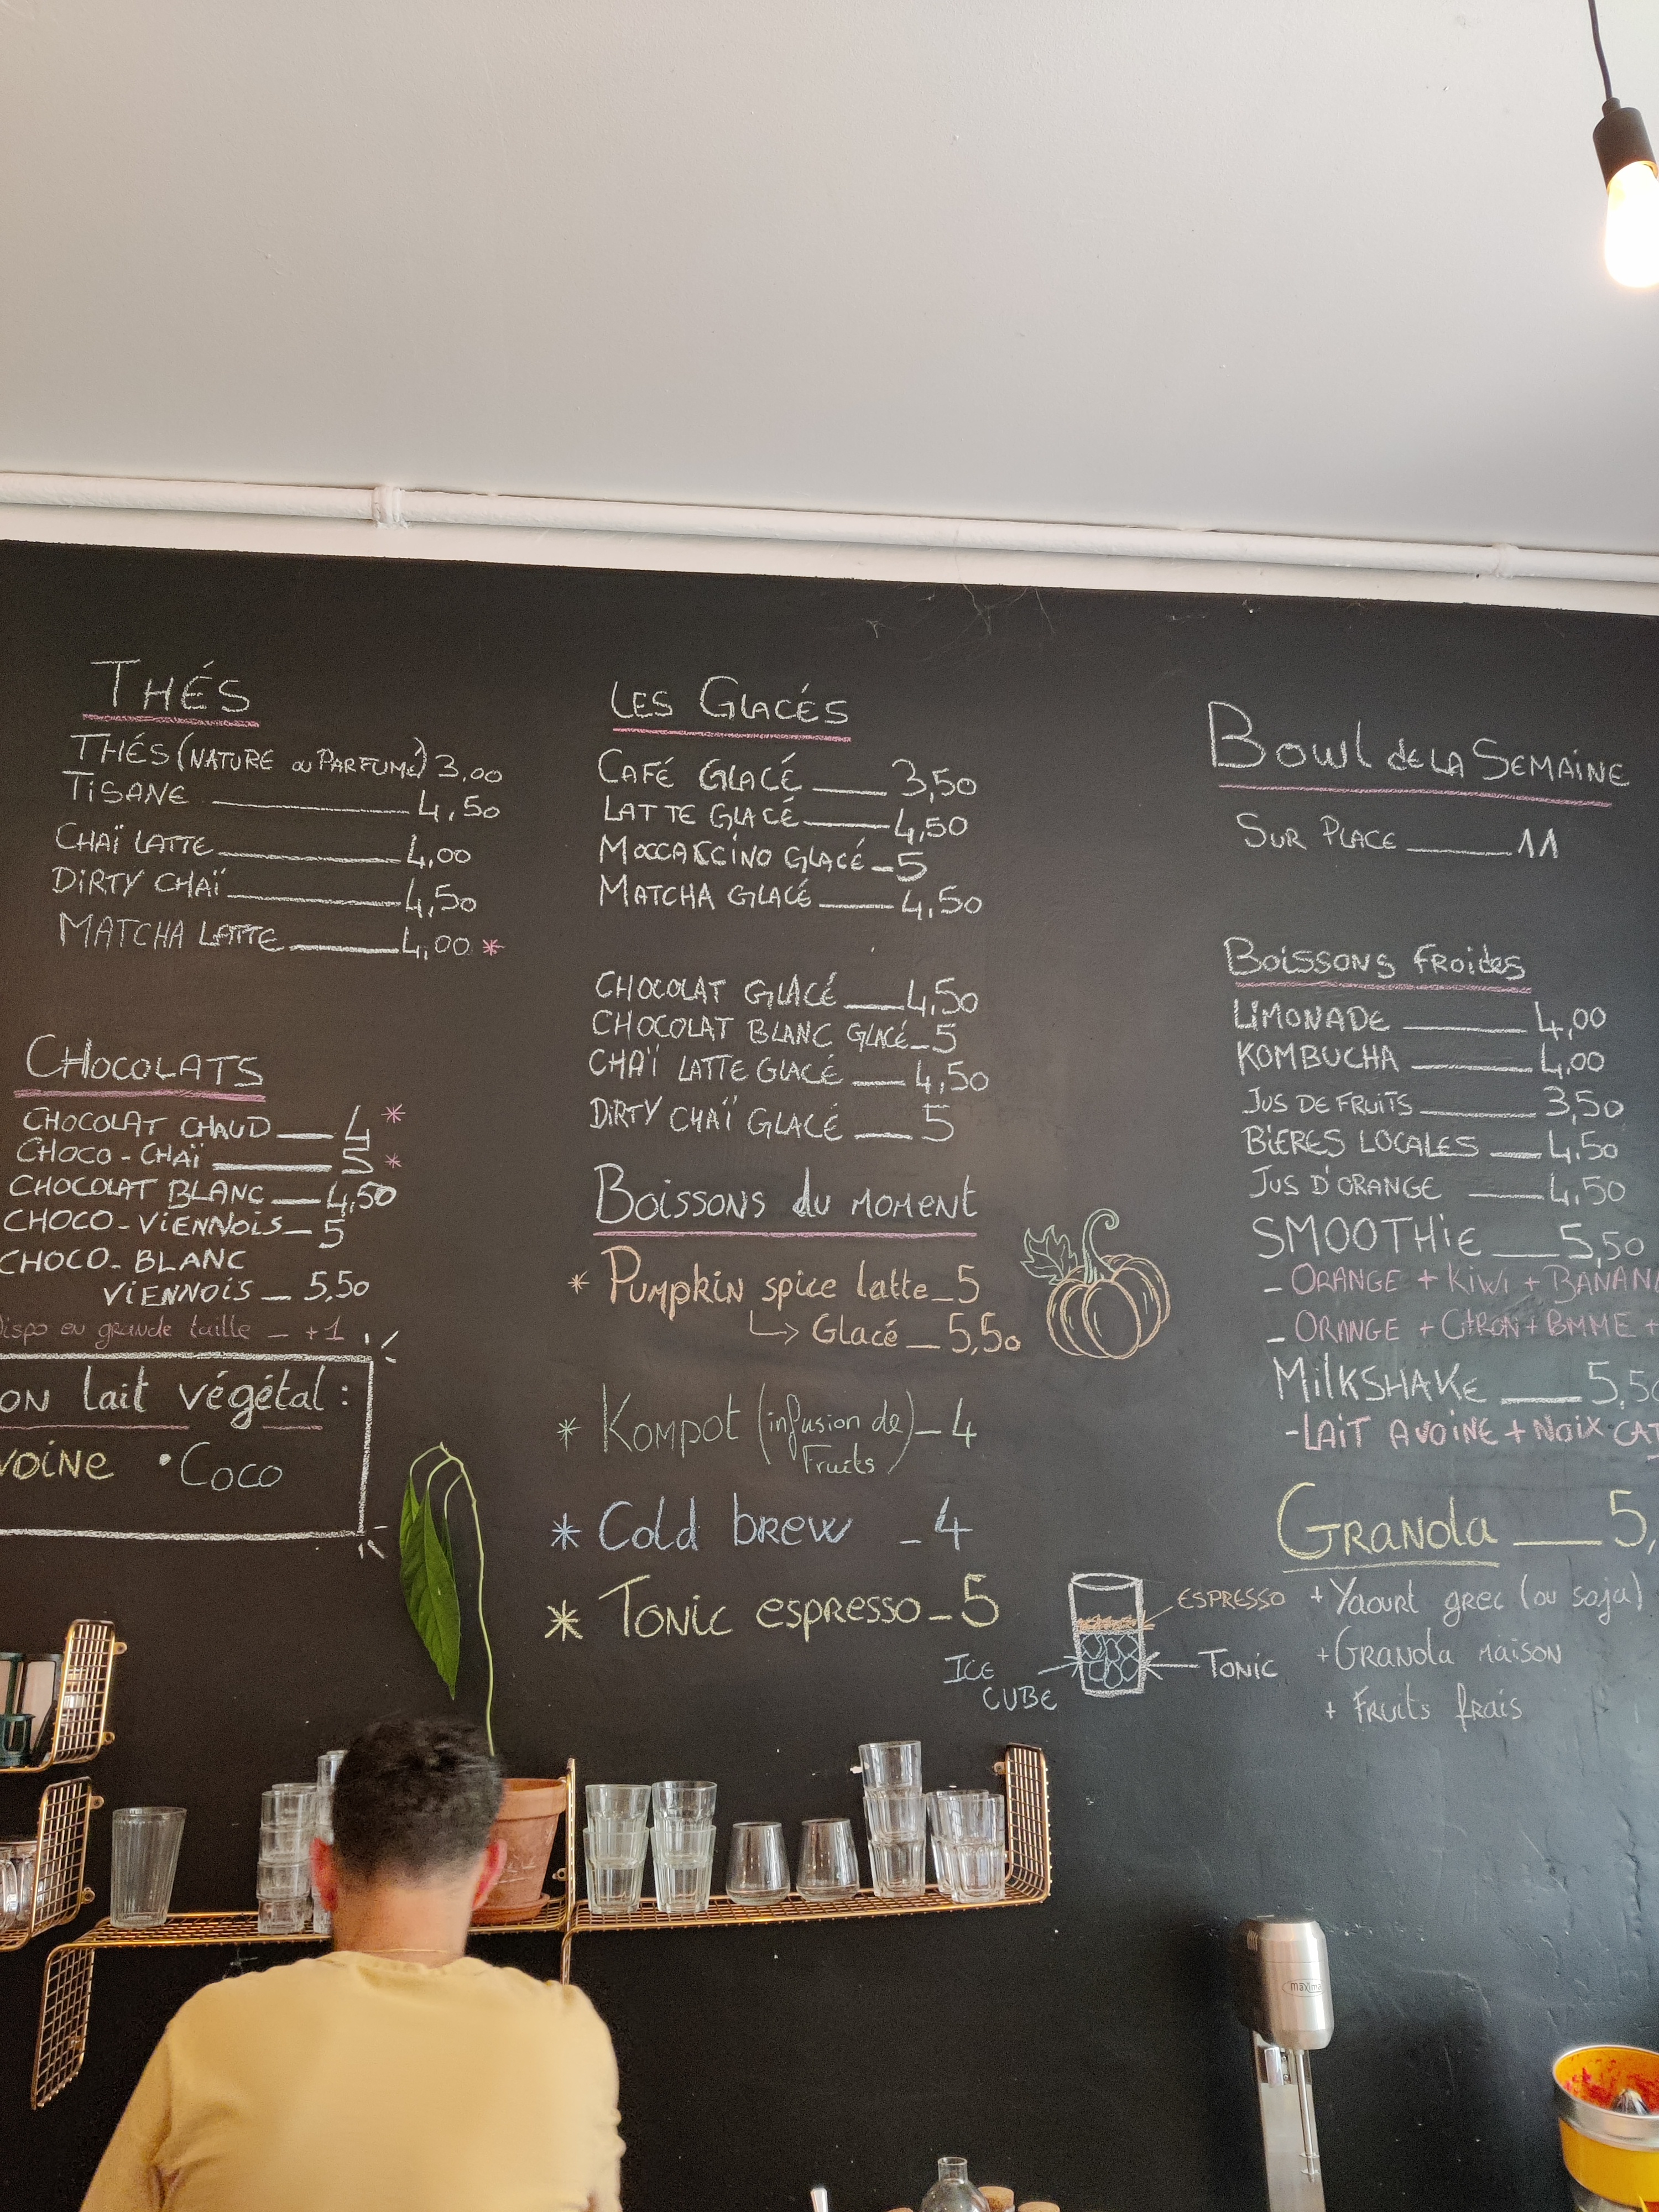 THÉS
THÉS (NATURE ou PARFUMÉ) 3,00
TISANE 4,50
CHAÏ LATTE 4,00
DIRTY CHAÏ 4,50
MATCHA LATTE 4,00 *
CHOCOLATS
CHOCOLAT CHAUD 4 *
CHOCO-CHAÏ 5 *
CHOCOLAT BLANC 4,50
CHOCO-VIENNOIS 5
CHOCO-BLANC
VIENNOIS 5,50
Dispo en grande taille - +1
ON lait végétal :
VOINE • Coco
LES GLACÉS
CAFÉ GLACÉ 3,50
LATTE GLACÉ 4,50
MOCCACCINO GLACÉ 5
MATCHA GLACÉ 4,50
CHOCOLAT GLACÉ 4,50
CHOCOLAT BLANC GLACÉ 5
CHAÏ LATTE GLACÉ 4,50
DIRTY CHAÏ GLACÉ 5
BOISSONS du MOMENT
* PUMPKIN spice latte 5
Glacé 5,50
* KOMPOT (infusion de 4
Fruits)
* Cold brew 4
* TONIC espresso 5
ESPRESSO
ICE
CUBE
TONIC
BOWL de LA SEMAINE
SUR PLACE 11
BOISSONS FROIDES
LIMONADE 4,00
KOMBUCHA 4,00
JUS DE FRUITS 3,50
BIERES LOCALES 4,50
JUS D'ORANGE 4,50
SMOOTHIE 5,50
- ORANGE + KIWI + BANAN
- ORANGE + CITRON +
MILKSHAKE 5,50
- LAIT AVOINE + NOIX
GRANOLA 5,
+ Yaourt grec (ou soja)
+ GRANOLA MAISON
+ FRUITS frais
maxima